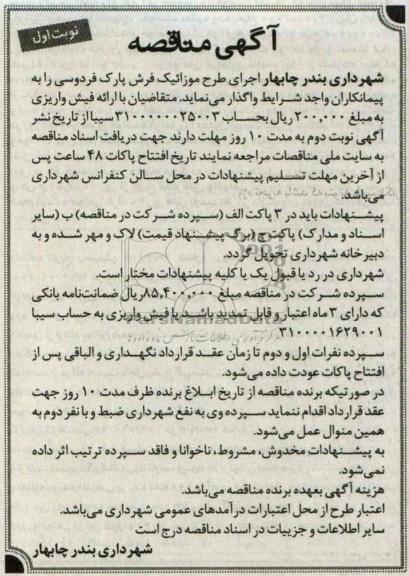 نوبت اول
آگهی مناقصه
شهرداری بندر چابهار اجرای طرح موزائیک فرش پارک فردوسی را به
پیمانکاران واجد شرایط واگذار می‌نماید. متقاضیان با ارائه فیش واریزی
به مبلغ ۲۰۰,۰۰۰ ریال بحساب ۳۱۰۰۰۰۰۰۲۵۰۰۳ سیبا از تاریخ نشر
آگهی نوبت دوم به مدت ۱۰ روز مهلت دارند جهت دریافت اسناد مناقصه
به سایت ملی مناقصات مراجعه نمایند تاریخ افتتاح پاکات ۴۸ ساعت پس
از آخرین مهلت تسلیم پیشنهادات در محل سالن کنفرانس شهرداری
می‌باشد.
پیشنهادات باید در ۳ پاکت الف (سپرده شرکت در مناقصه) ب (سایر
اسناد و مدارک) پاکت ج (برگ پیشنهاد قیمت) لاک و مهر شده و به
دبیرخانه شهرداری تحویل گردد.
شهرداری در رد یا قبول یک یا کلیه پیشنهادات مختار است.
سپرده شرکت در مناقصه مبلغ ۸۵,۴۰۰,۰۰۰ ریال ضمانت‌نامه بانکی
که دارای ۳ ماه اعتبار و قابل تمدید باشد یا فیش واریزی به حساب سیبا
۳۱۰۰۰۰۱۶۲۹۰۰۱
ParsNamadData
سپرده نفرات اول و دوم تا زمان عقد قرارداد نگهداری و الباقی پس از
افتتاح پاکات عودت داده می‌شود.
در صورتیکه برنده مناقصه از تاریخ ابلاغ برنده ظرف مدت ۱۰ روز جهت
عقد قرارداد اقدام ننماید سپرده وی به نفع شهرداری ضبط و با نفر دوم به
همین منوال عمل می‌شود.
به پیشنهادات مخدوش، مشروط، ناخوانا و فاقد سپرده ترتیب اثر داده
نمی‌شود.
هزینه آگهی بعهده برنده مناقصه می‌باشد.
اعتبار طرح از محل اعتبارات درآمدهای عمومی شهرداری می‌باشد.
سایر اطلاعات و جزییات در اسناد مناقصه درج است
شهرداری بندر چابهار